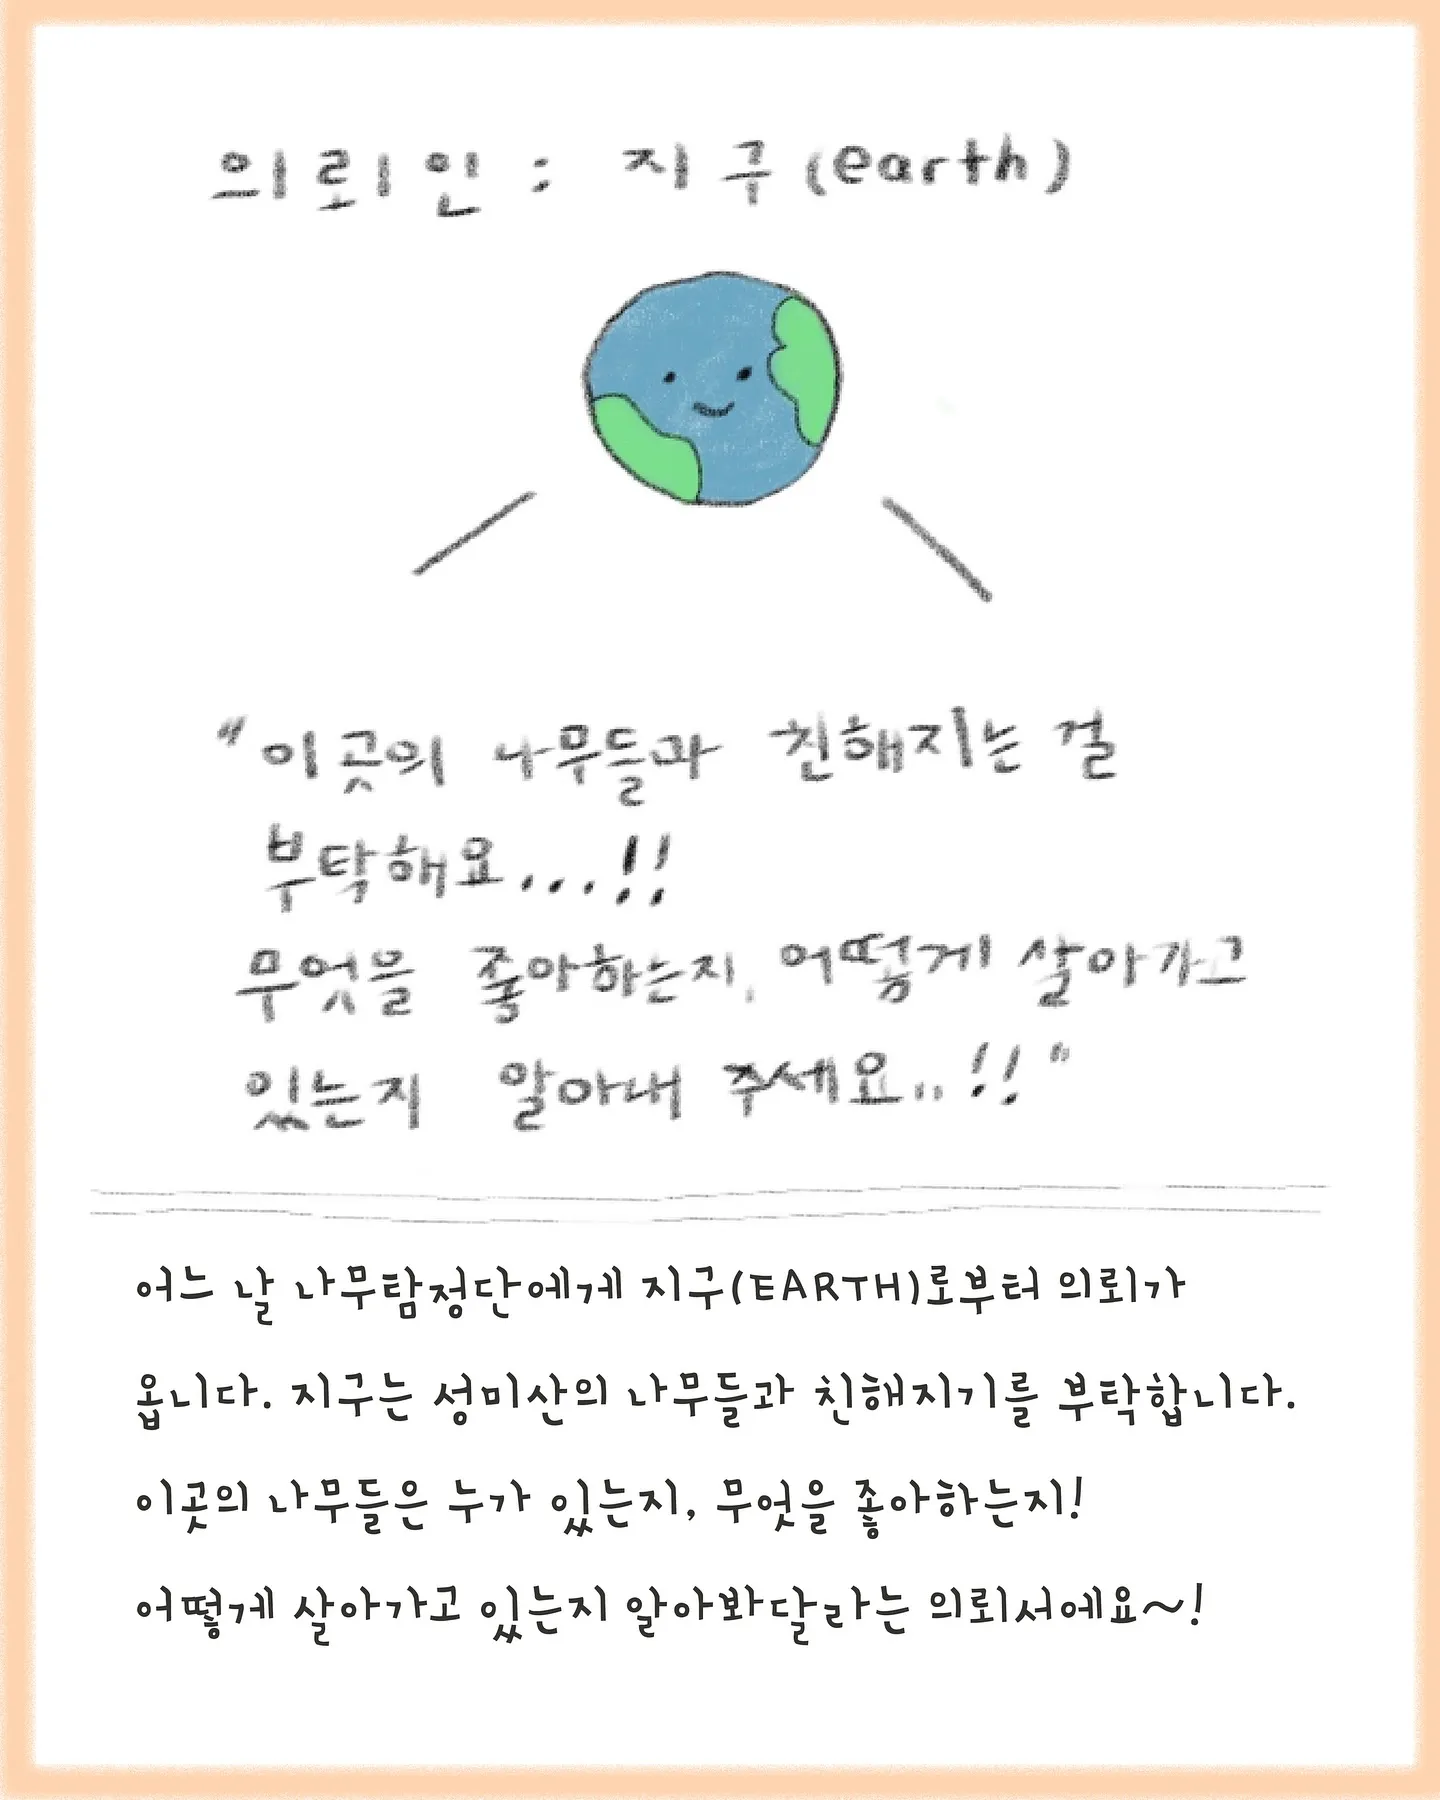 의뢰인 : 지구(earth)
"이곳의 나무들과 친해지는 걸
부탁해요...!!
무엇을 좋아하는지, 어떻게 살아가고
있는지 알아내 주세요..!!"
어느 날 나무탐정단에게 지구(EARTH)로부터 의뢰가
옵니다. 지구는 성미산의 나무들과 친해지기를 부탁합니다.
이곳의 나무들은 누가 있는지, 무엇을 좋아하는지!
어떻게 살아가고 있는지 알아봐달라는 의뢰서에요~!